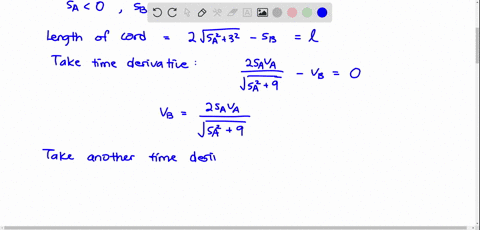 SA < 0 , SB
Length of cord = 2√(SA²+3²) - SB = l
Take time derivative: 2SAVA/√(SA²+9) - VB = 0
VB = 2SAVA/√(SA²+9)
Take another time deri